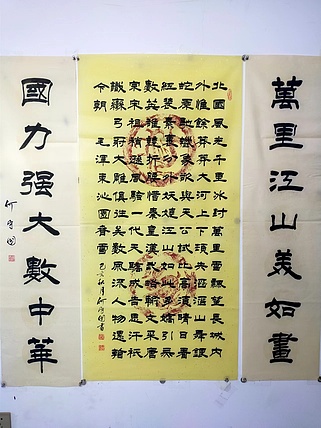 萬里江山美如畫
北國風光千里冰封萬里雪飄望長城內
外惟餘莽莽大河上下頓失滔滔山舞銀
蛇原馳蠟象欲與天公試比高須晴日看
紅裝素裹分外妖嬈江山如此多嬌引無
數英雄競折腰惜秦皇漢武略輸文采唐
宗宋祖稍遜風騷一代天驕成吉思汗祇
識彎弓射大雕俱往矣數風流人物還看
今朝
毛澤東沁園春雪
己亥秋月
國力强大數中華